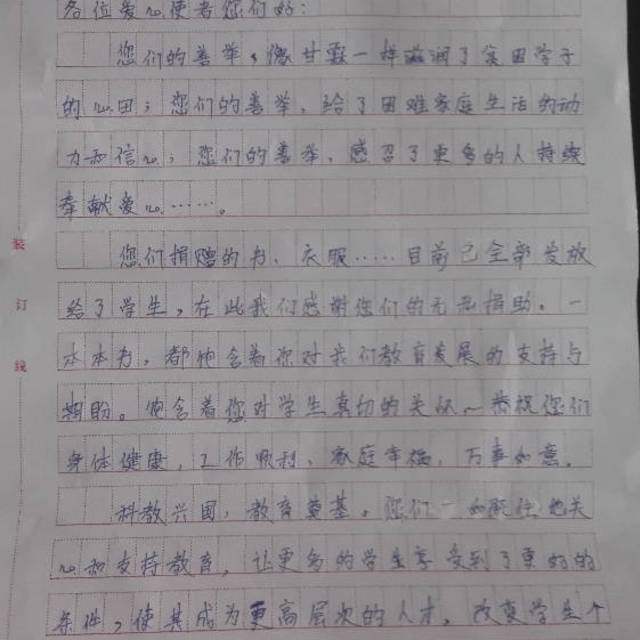 各位爱心使者您们好:
您们的善举,像甘霖一样滋润了贫困学子
的心田;您们的善举,给了困难家庭生活的动
力和信心;您们的善举,感召了更多的人持续
奉献爱心……。
您们捐赠的书、衣服……目前已全部发放
给了学生,在此我们感谢您们的无私捐助。一
本本书,都饱含着你对我们教育发展的支持与
期盼。饱含着您对学生真切的关怀~恭祝您们
身体健康,工作顺利,家庭幸福,万事如意。
科教兴国,教育奠基。您们一如既往地关
心和支持教育,让更多的学生享受到了更好的
条件,使其成为更高层次的人才,改变学生个
装
订
线